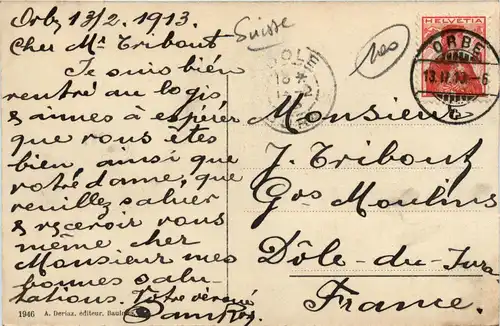 Orbe 13/2. 1913.
Cher Mr Tribout
Je suis bien
rentré au logis
& aimes à espérer
que vous êtes
bien ainsi que
votre dame, que
veuillez saluer
& recevoir vous
même cher
Monsieur mes
bonnes salu-
tations. Votre dévoué
1946 A. Deriaz, éditeur, Baulmes
Suisse
100
DOLE
HELVETIA
ORBE
13.II.13.-6
Monsieur
J. Tribout
Gds Moulins
Dôle-du-Jura
France.